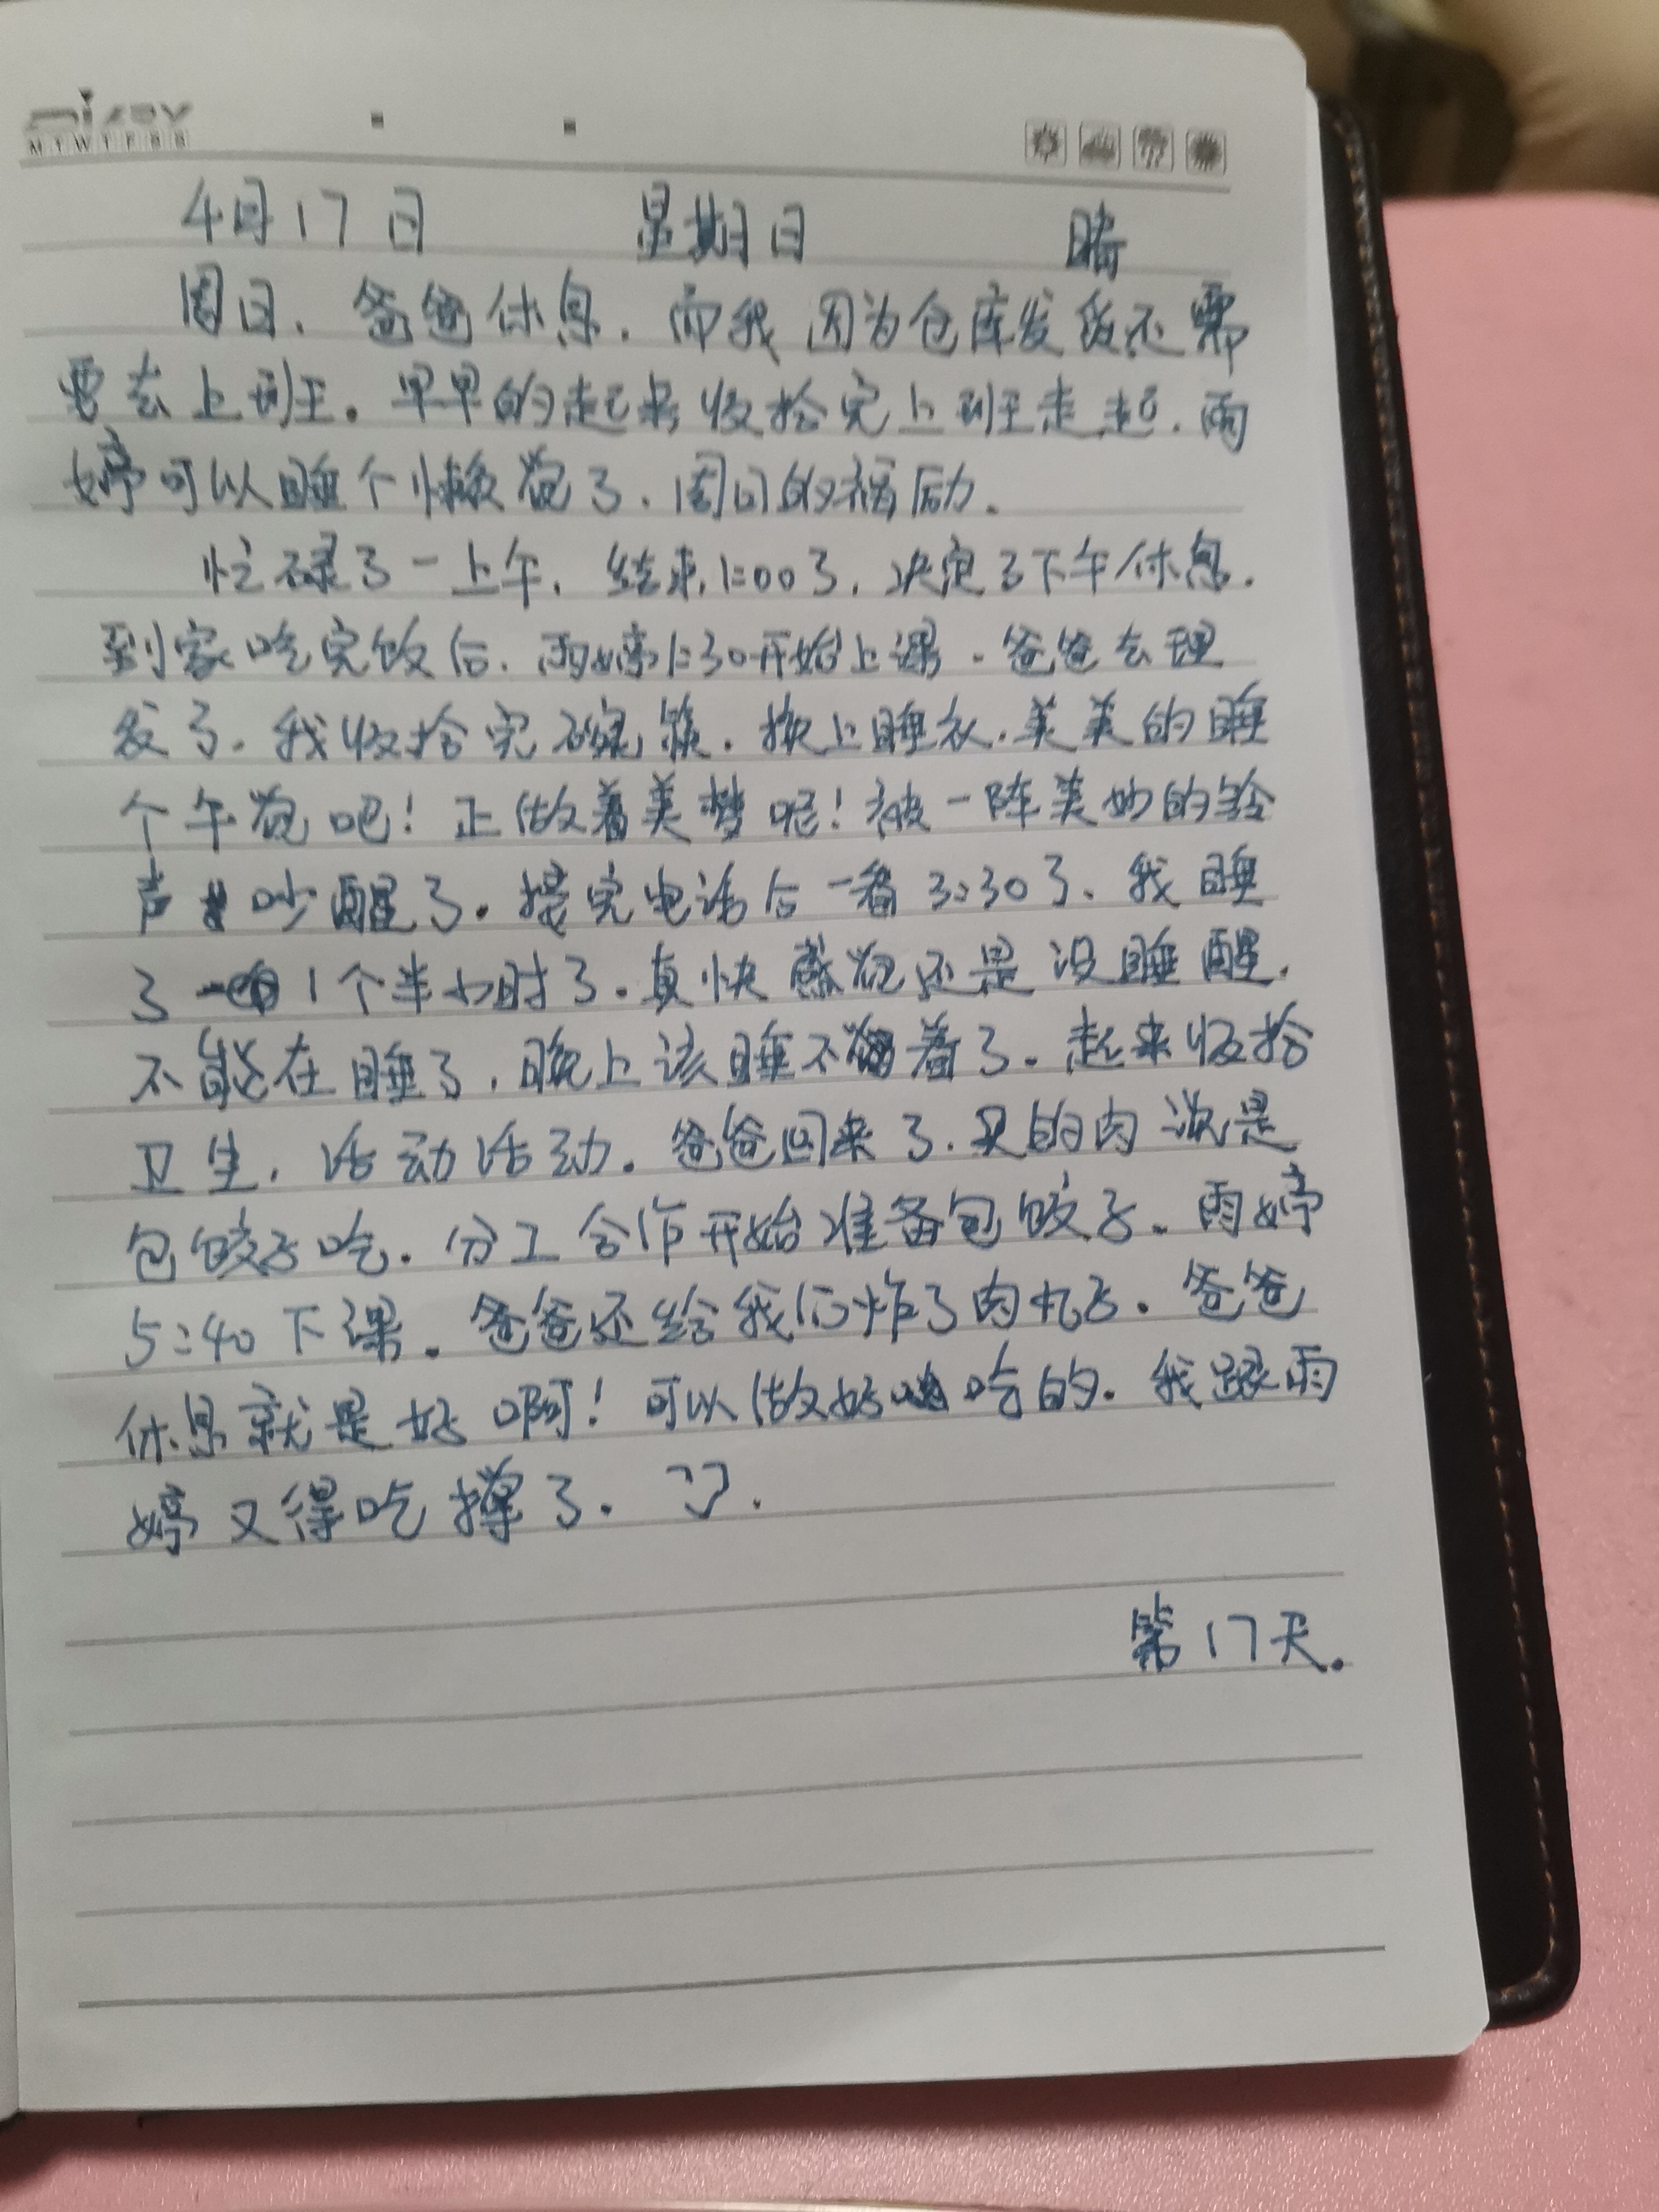 M T W T F S S
4月17日 星期日 晴
周日,爸爸休息,而我因为仓库发货还需
要去上班。早早的起来收拾完上班走起,雨
婷可以睡个懒觉了,周日的福励。
忙碌了一上午,结束1:00了,决定了下午休息,
到家吃完饭后,雨婷1:30开始上课,爸爸去理
发了,我收拾完碗筷,换上睡衣,美美的睡
个午觉吧!正做着美梦呢!被一阵美妙的铃
声吵醒了。接完电话后一看3:30了,我睡
了1个半小时了。真快感觉还是没睡醒,
不能在睡了,晚上该睡不着了。起来收拾
卫生,活动活动。爸爸回来了,买的肉说是
包饺子吃。分工合作开始准备包饺子。雨婷
5:40下课。爸爸还给我们炸了肉丸子。爸爸
休息就是好啊!可以做好吃的。我跟雨
婷又得吃撑了。
第17天。